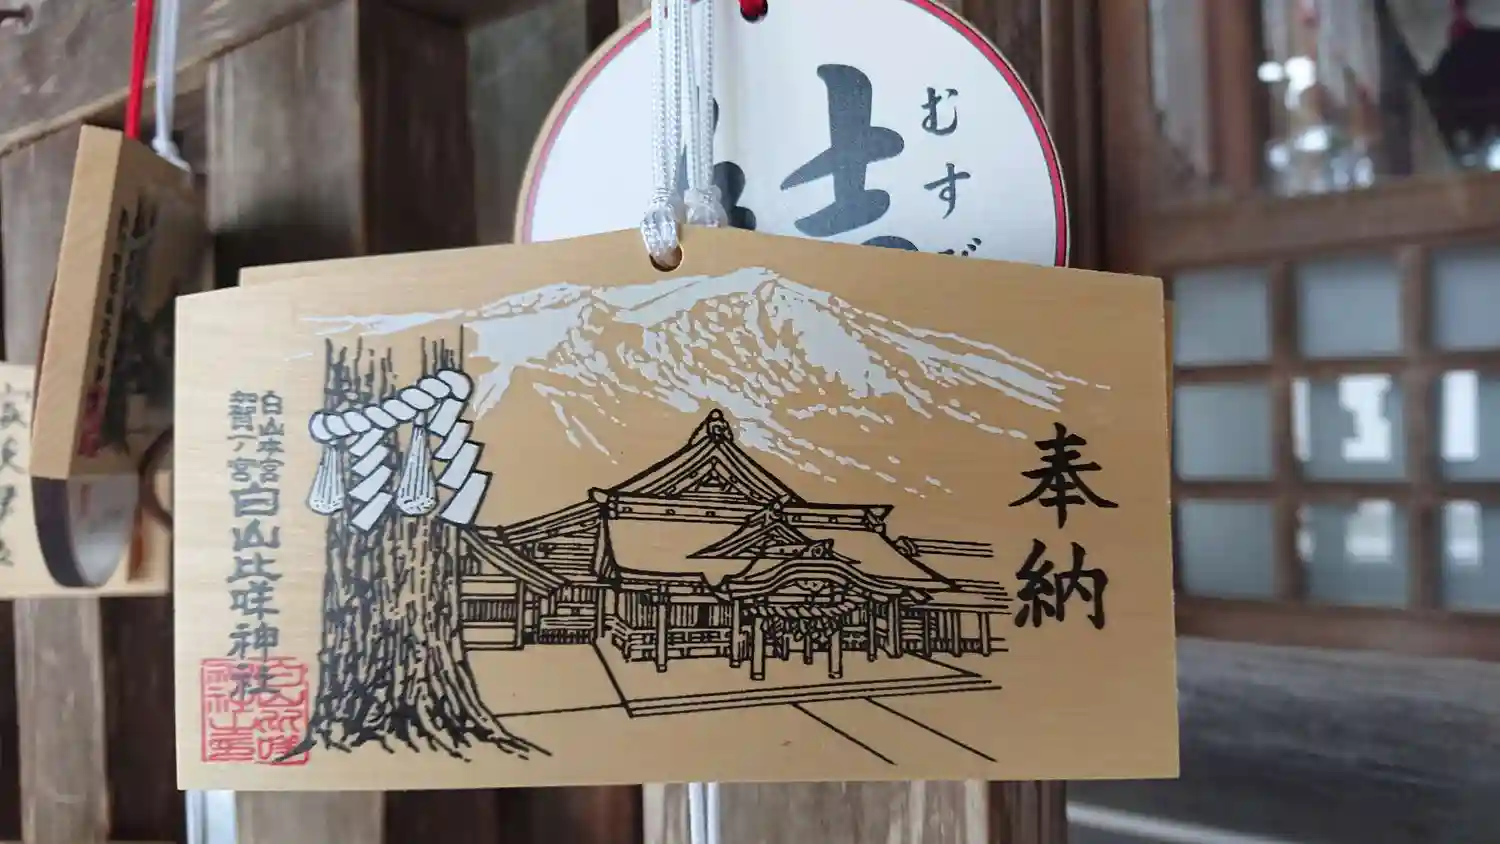 結
むすび
奉納
白山本宮
加賀一ノ宮
白山比咩神社